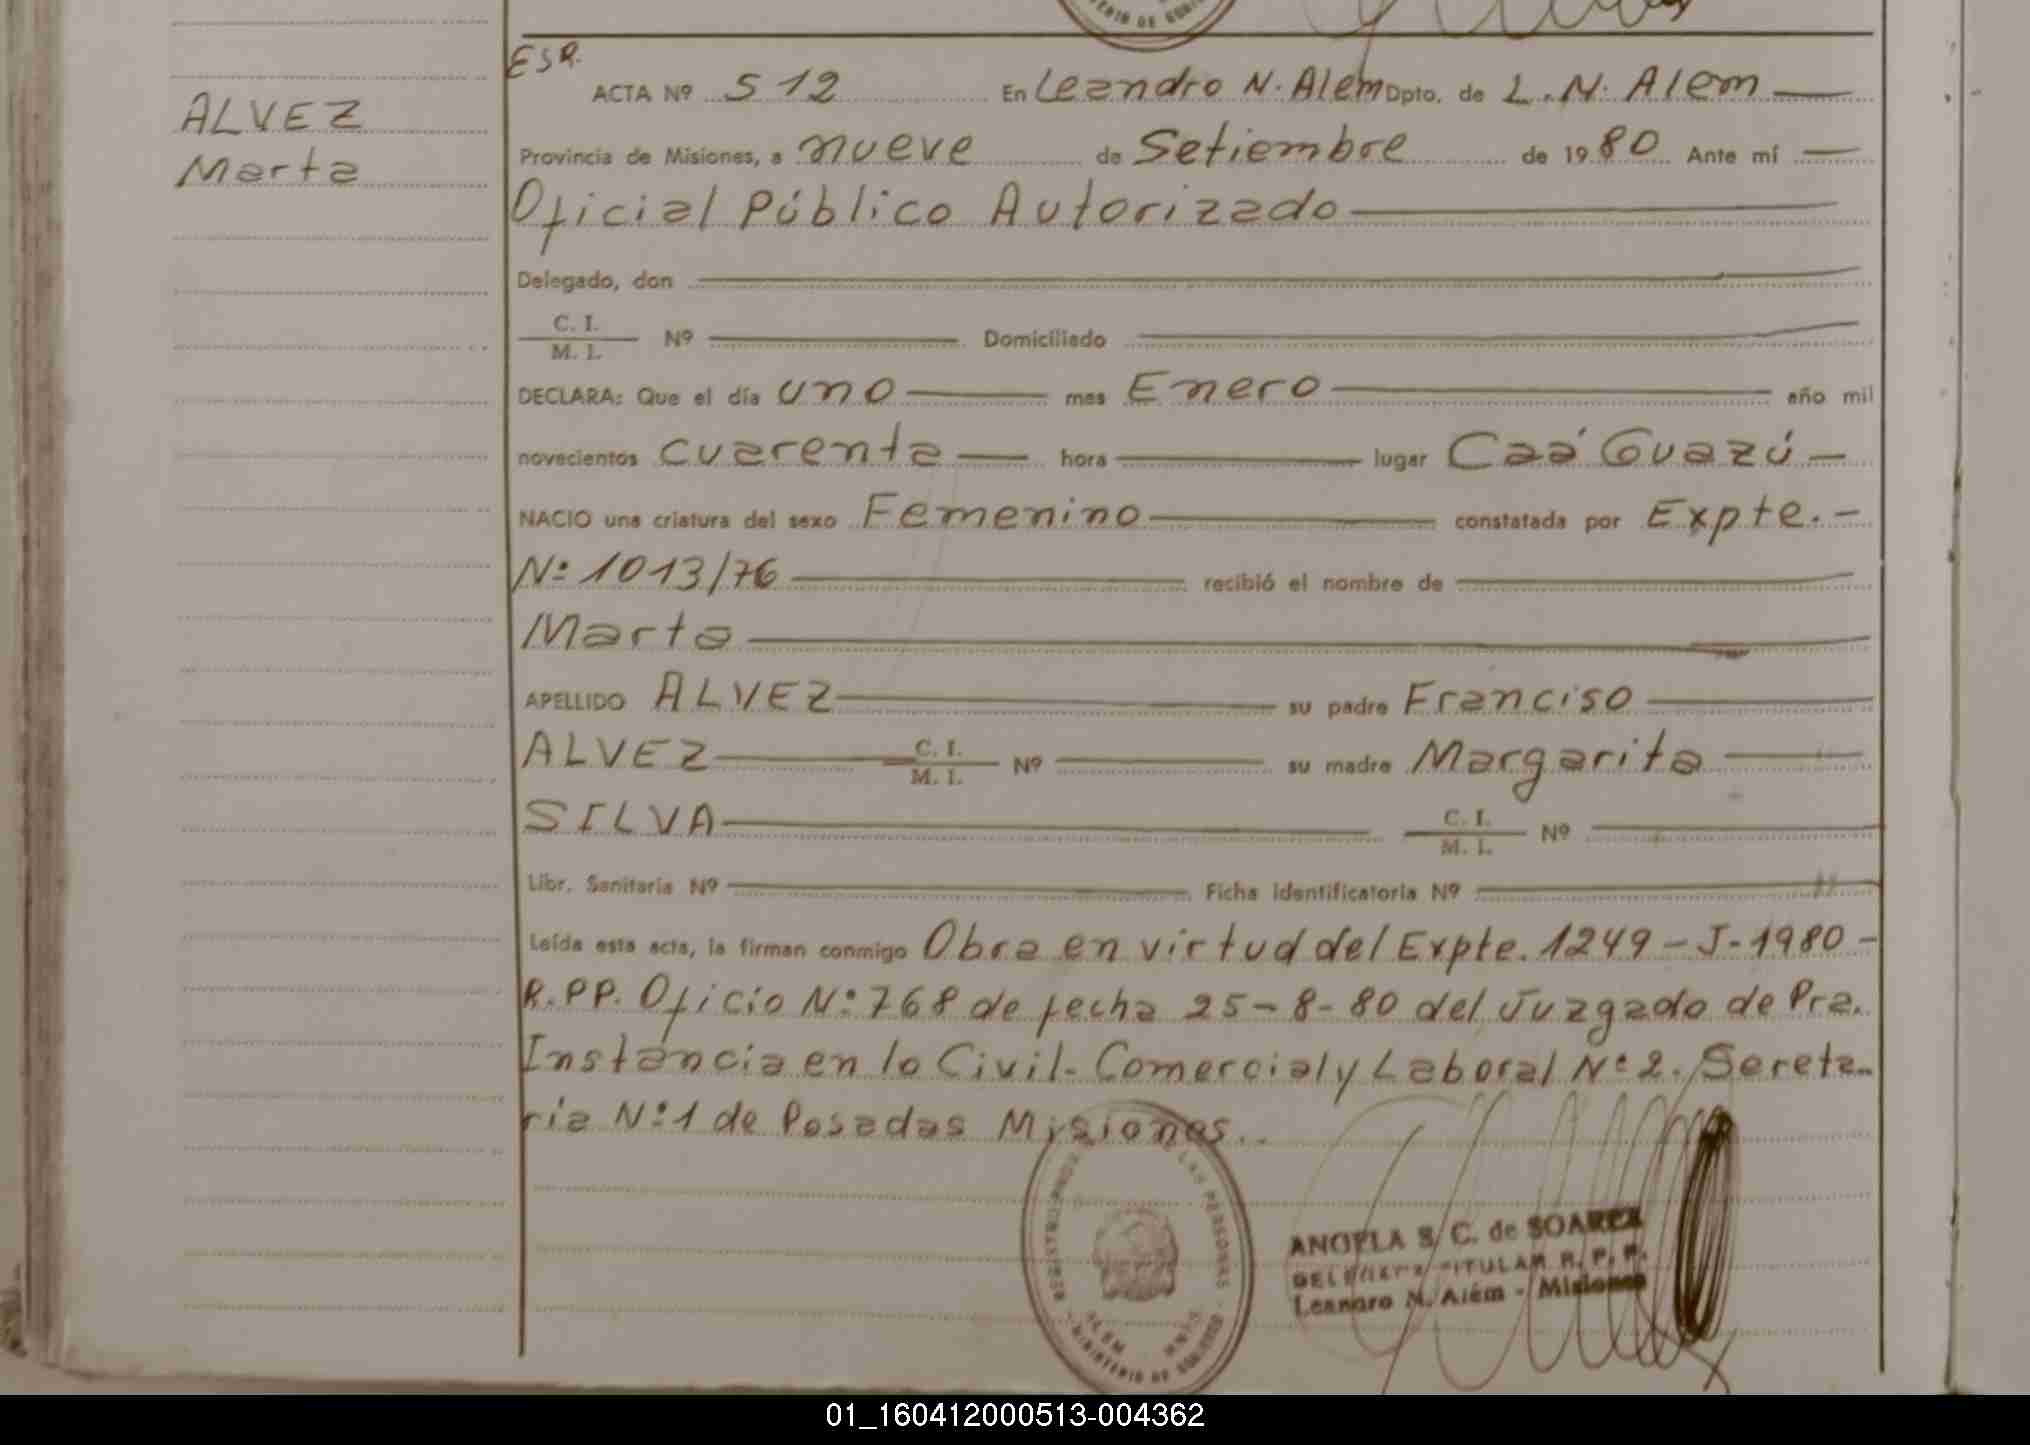 MINISTERIO DE GOBIERNO
ESR.
ALVEZ
Marta
ACTA Nº 512 En Leandro N. Alem Dpto. de L. N. Alem
Provincia de Misiones, a nueve de Setiembre de 1980 Ante mí
Oficial Público Autorizado
Delegado, don
C. I.
M. I. Nº Domiciliado
DECLARA: Que el día uno mes Enero año mil
novecientos cuarenta hora lugar Caá Guazú
NACIO una criatura del sexo Femenino constatada por Expte. -
Nº 1013/76 recibió el nombre de
Marta
APELLIDO ALVEZ su padre Franciso
ALVEZ C. I. M. I. Nº su madre Margarita
SILVA C. I. M. I. Nº
Libr. Sanitaria Nº Ficha identificatoria Nº
Leída esta acta, la firman conmigo Obra en virtud del Expte. 1249 - J - 1980 -
R.PP. Oficio Nº 768 de fecha 25-8-80 del Juzgado de Pra.
Instancia en lo Civil - Comercial y Laboral Nº 2. Sereta-
ria Nº 1 de Posadas Misiones.
DE LAS PERSONAS
MINISTERIO DE GOBIERNO
ANGELA S. C. de SOAREZ
DELEGADA TITULAR R. P. P.
Leandro N. Além - Misiones
01_160412000513-004362